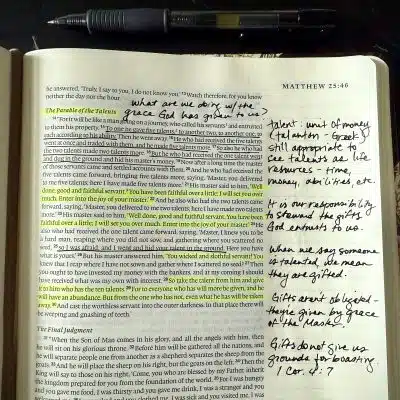 MATTHEW 25:46
he answered, 'Truly, I say to you, I do not know you.' 13 Watch therefore, for you know
neither the day nor the hour.
what are we doing w/ the
grace God has given to us?
The Parable of the Talents
14 "For it will be like a man going on a journey, who called his servants and entrusted
to them his property. 15 To one he gave five talents, to another two, to another one, to
each according to his ability. Then he went away. 16 He who had received the five talents
went at once and traded with them, and he made five talents more. 17 So also he who had
the two talents made two talents more. 18 But he who had received the one talent went
and dug in the ground and hid his master's money. 19 Now after a long time the master
of those servants came and settled accounts with them. 20 And he who had received the
five talents came forward, bringing five talents more, saying, 'Master, you delivered
to me five talents; here I have made five talents more.' 21 His master said to him, 'Well
done, good and faithful servant. You have been faithful over a little; I will set you over
much. Enter into the joy of your master.' 22 And he also who had the two talents came
forward, saying, 'Master, you delivered to me two talents; here I have made two talents
more.' 23 His master said to him, 'Well done, good and faithful servant. You have been
faithful over a little; I will set you over much. Enter into the joy of your master.' 24 He
also who had received the one talent came forward, saying, 'Master, I knew you to be
a hard man, reaping where you did not sow, and gathering where you scattered no
seed, 25 so I was afraid, and I went and hid your talent in the ground. Here you have
what is yours.' 26 But his master answered him, 'You wicked and slothful servant! You
knew that I reap where I have not sown and gather where I scattered no seed? 27 Then
you ought to have invested my money with the bankers, and at my coming I should
have received what was my own with interest. 28 So take the talent from him and give
it to him who has the ten talents. 29 For to everyone who has will more be given, and he
will have an abundance. But from the one who has not, even what he has will be taken
away. 30 And cast the worthless servant into the outer darkness. In that place there will
be weeping and gnashing of teeth.'
The Final Judgment
31 "When the Son of Man comes in his glory, and all the angels with him, then
he will sit on his glorious throne. 32 Before him will be gathered all the nations, and
he will separate people one from another as a shepherd separates the sheep from the
goats. 33 And he will place the sheep on his right, but the goats on the left. 34 Then the
King will say to those on his right, 'Come, you who are blessed by my Father, inherit
the kingdom prepared for you from the foundation of the world. 35 For I was hungry
and you gave me food, I was thirsty and you gave me drink, I was a stranger and you
talent: unit of money
(talanton - Greek)
still appropriate to
see talents as life
resources - time,
money, abilities, etc.
It is our responsibility
to steward the gifts
God entrusts to us.
When we say someone
is talented, we mean
they are gifted.
Gifts aren't obligated -
they're given by grace
of the Master.
Gifts do not give us
grounds for boasting
1 Cor. 4:7